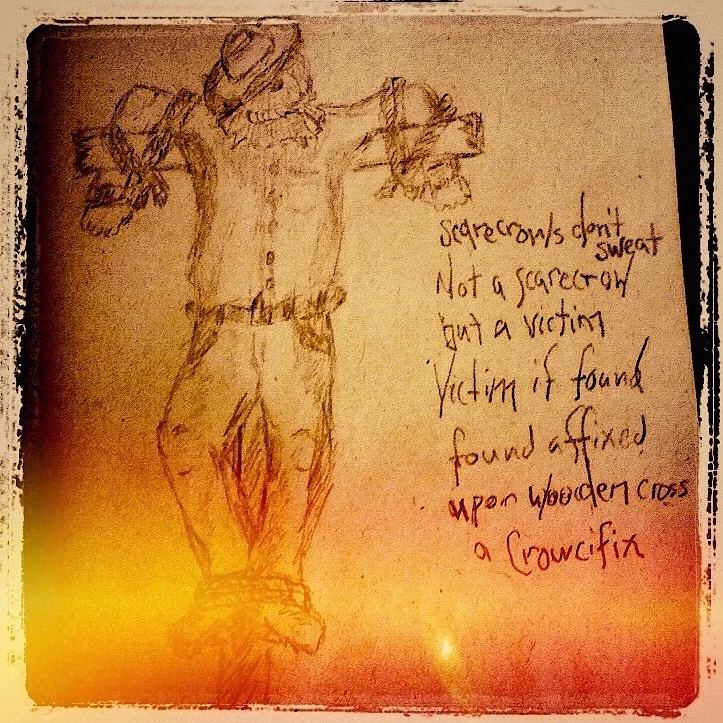 scarecrows don't
sweat
Not a scarecrow
but a victim
Victim if found
found affixed
upon wooden cross
a Crowcifix